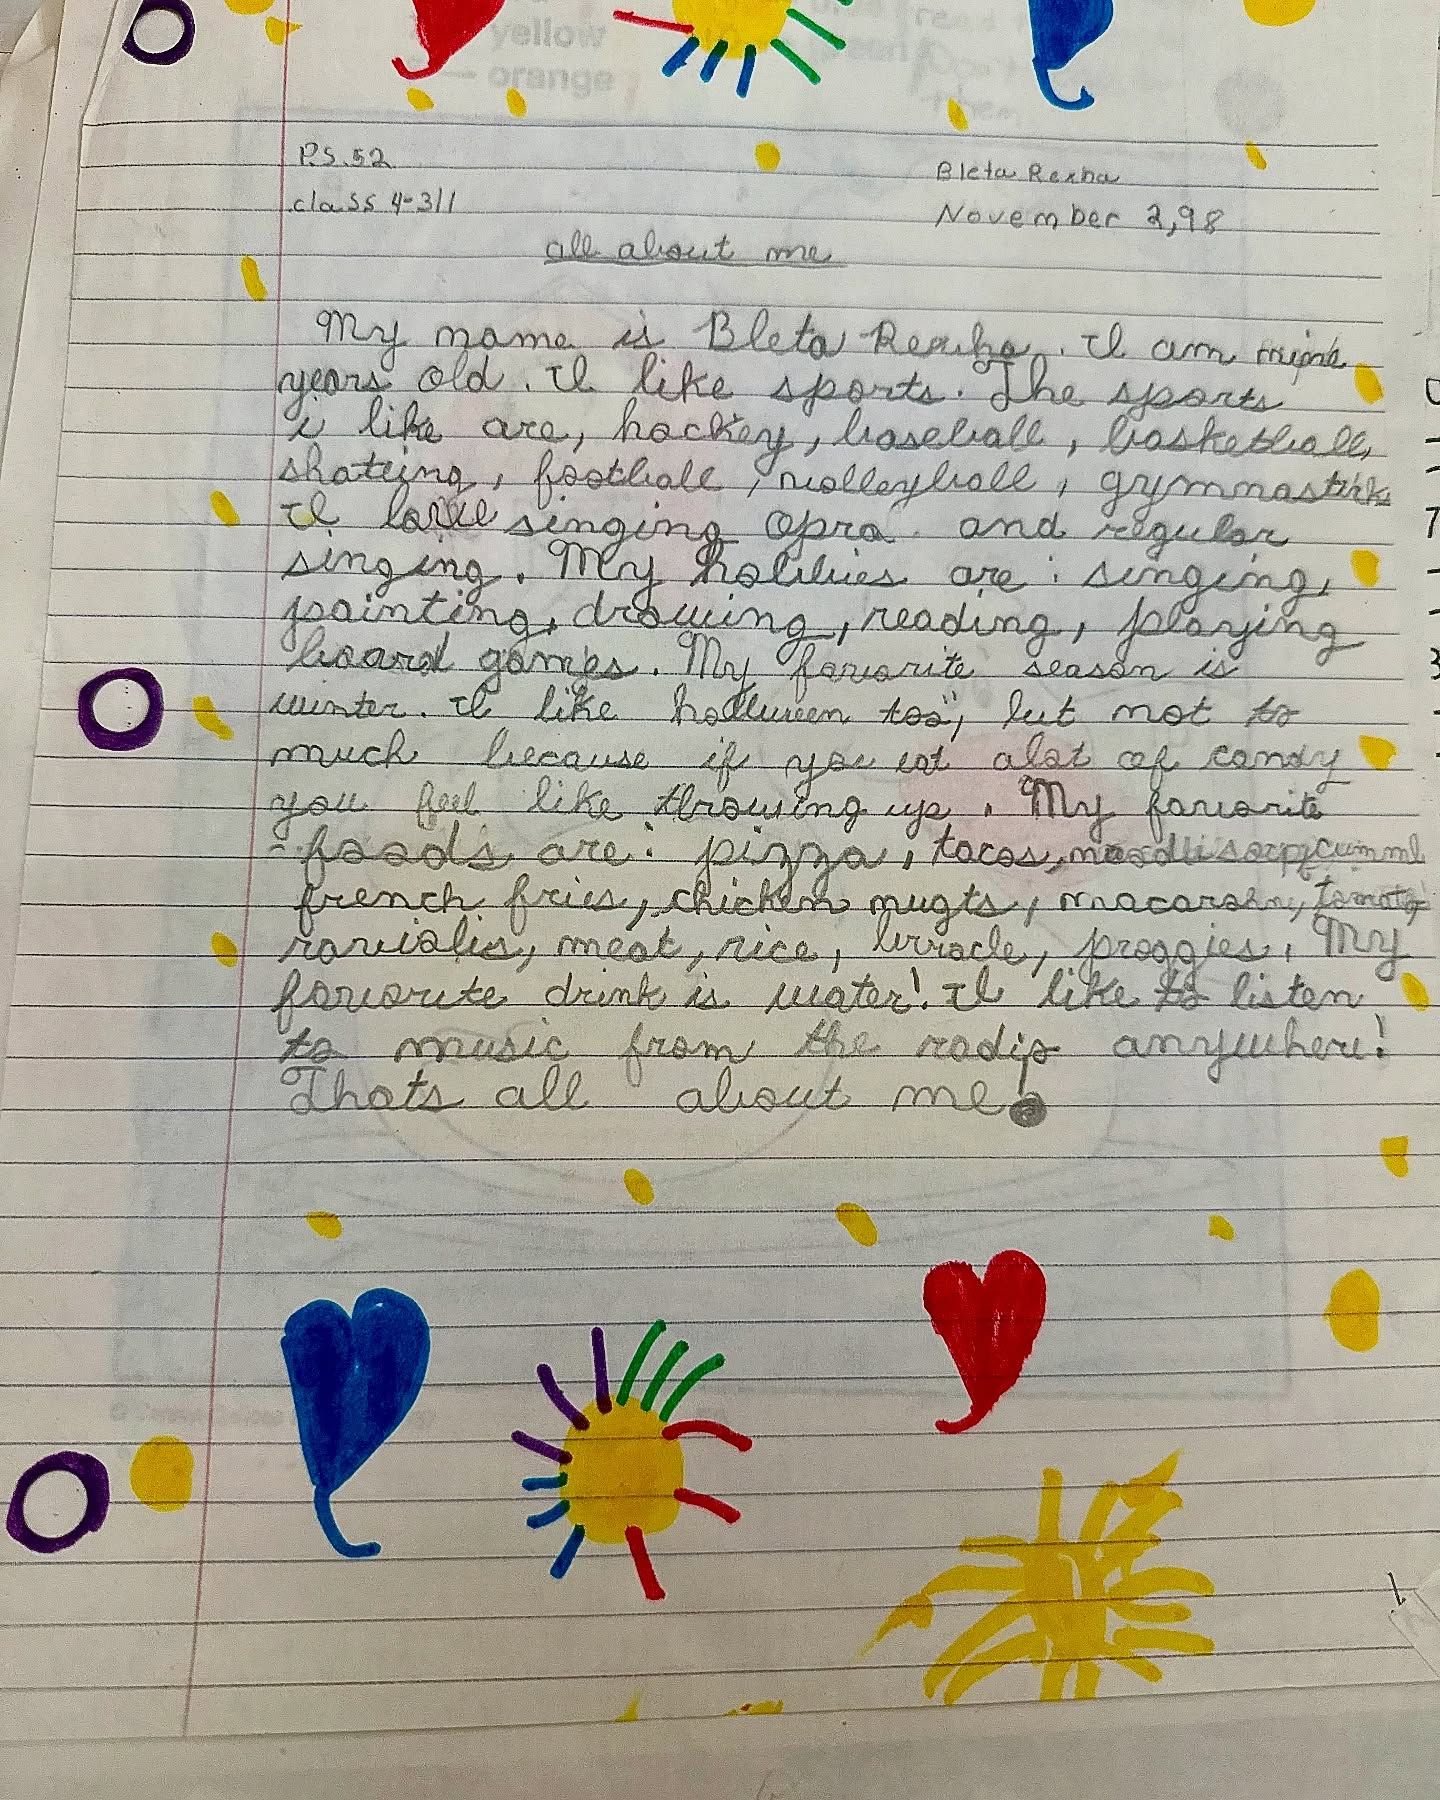 yellow
orange
P.S. 52
Bleta Rexha
class 4-311
November 2, 98
all about me
My name is Bleta Rexha. I am nine
years old. I like sports. The sports
i like are, hockey, baseball, basketball,
skateing, football, volleyball, gymnastiks
I love singing opra and regular
singing. My hobbies are: singing,
painting, drawing, reading, playing
board games. My favorite season is
winter. I like holluween too, but not to
much because if you eat alot of candy
you feel like throwing up. My favorite
foods are: pizza, tacos,
french fries, chicken nugts, macaroni, tomato
raviolis, meat, rice, brracle, proggies. My
favorite drink is water! I like to listen
to music from the radio anywhere!
Thats all about me!